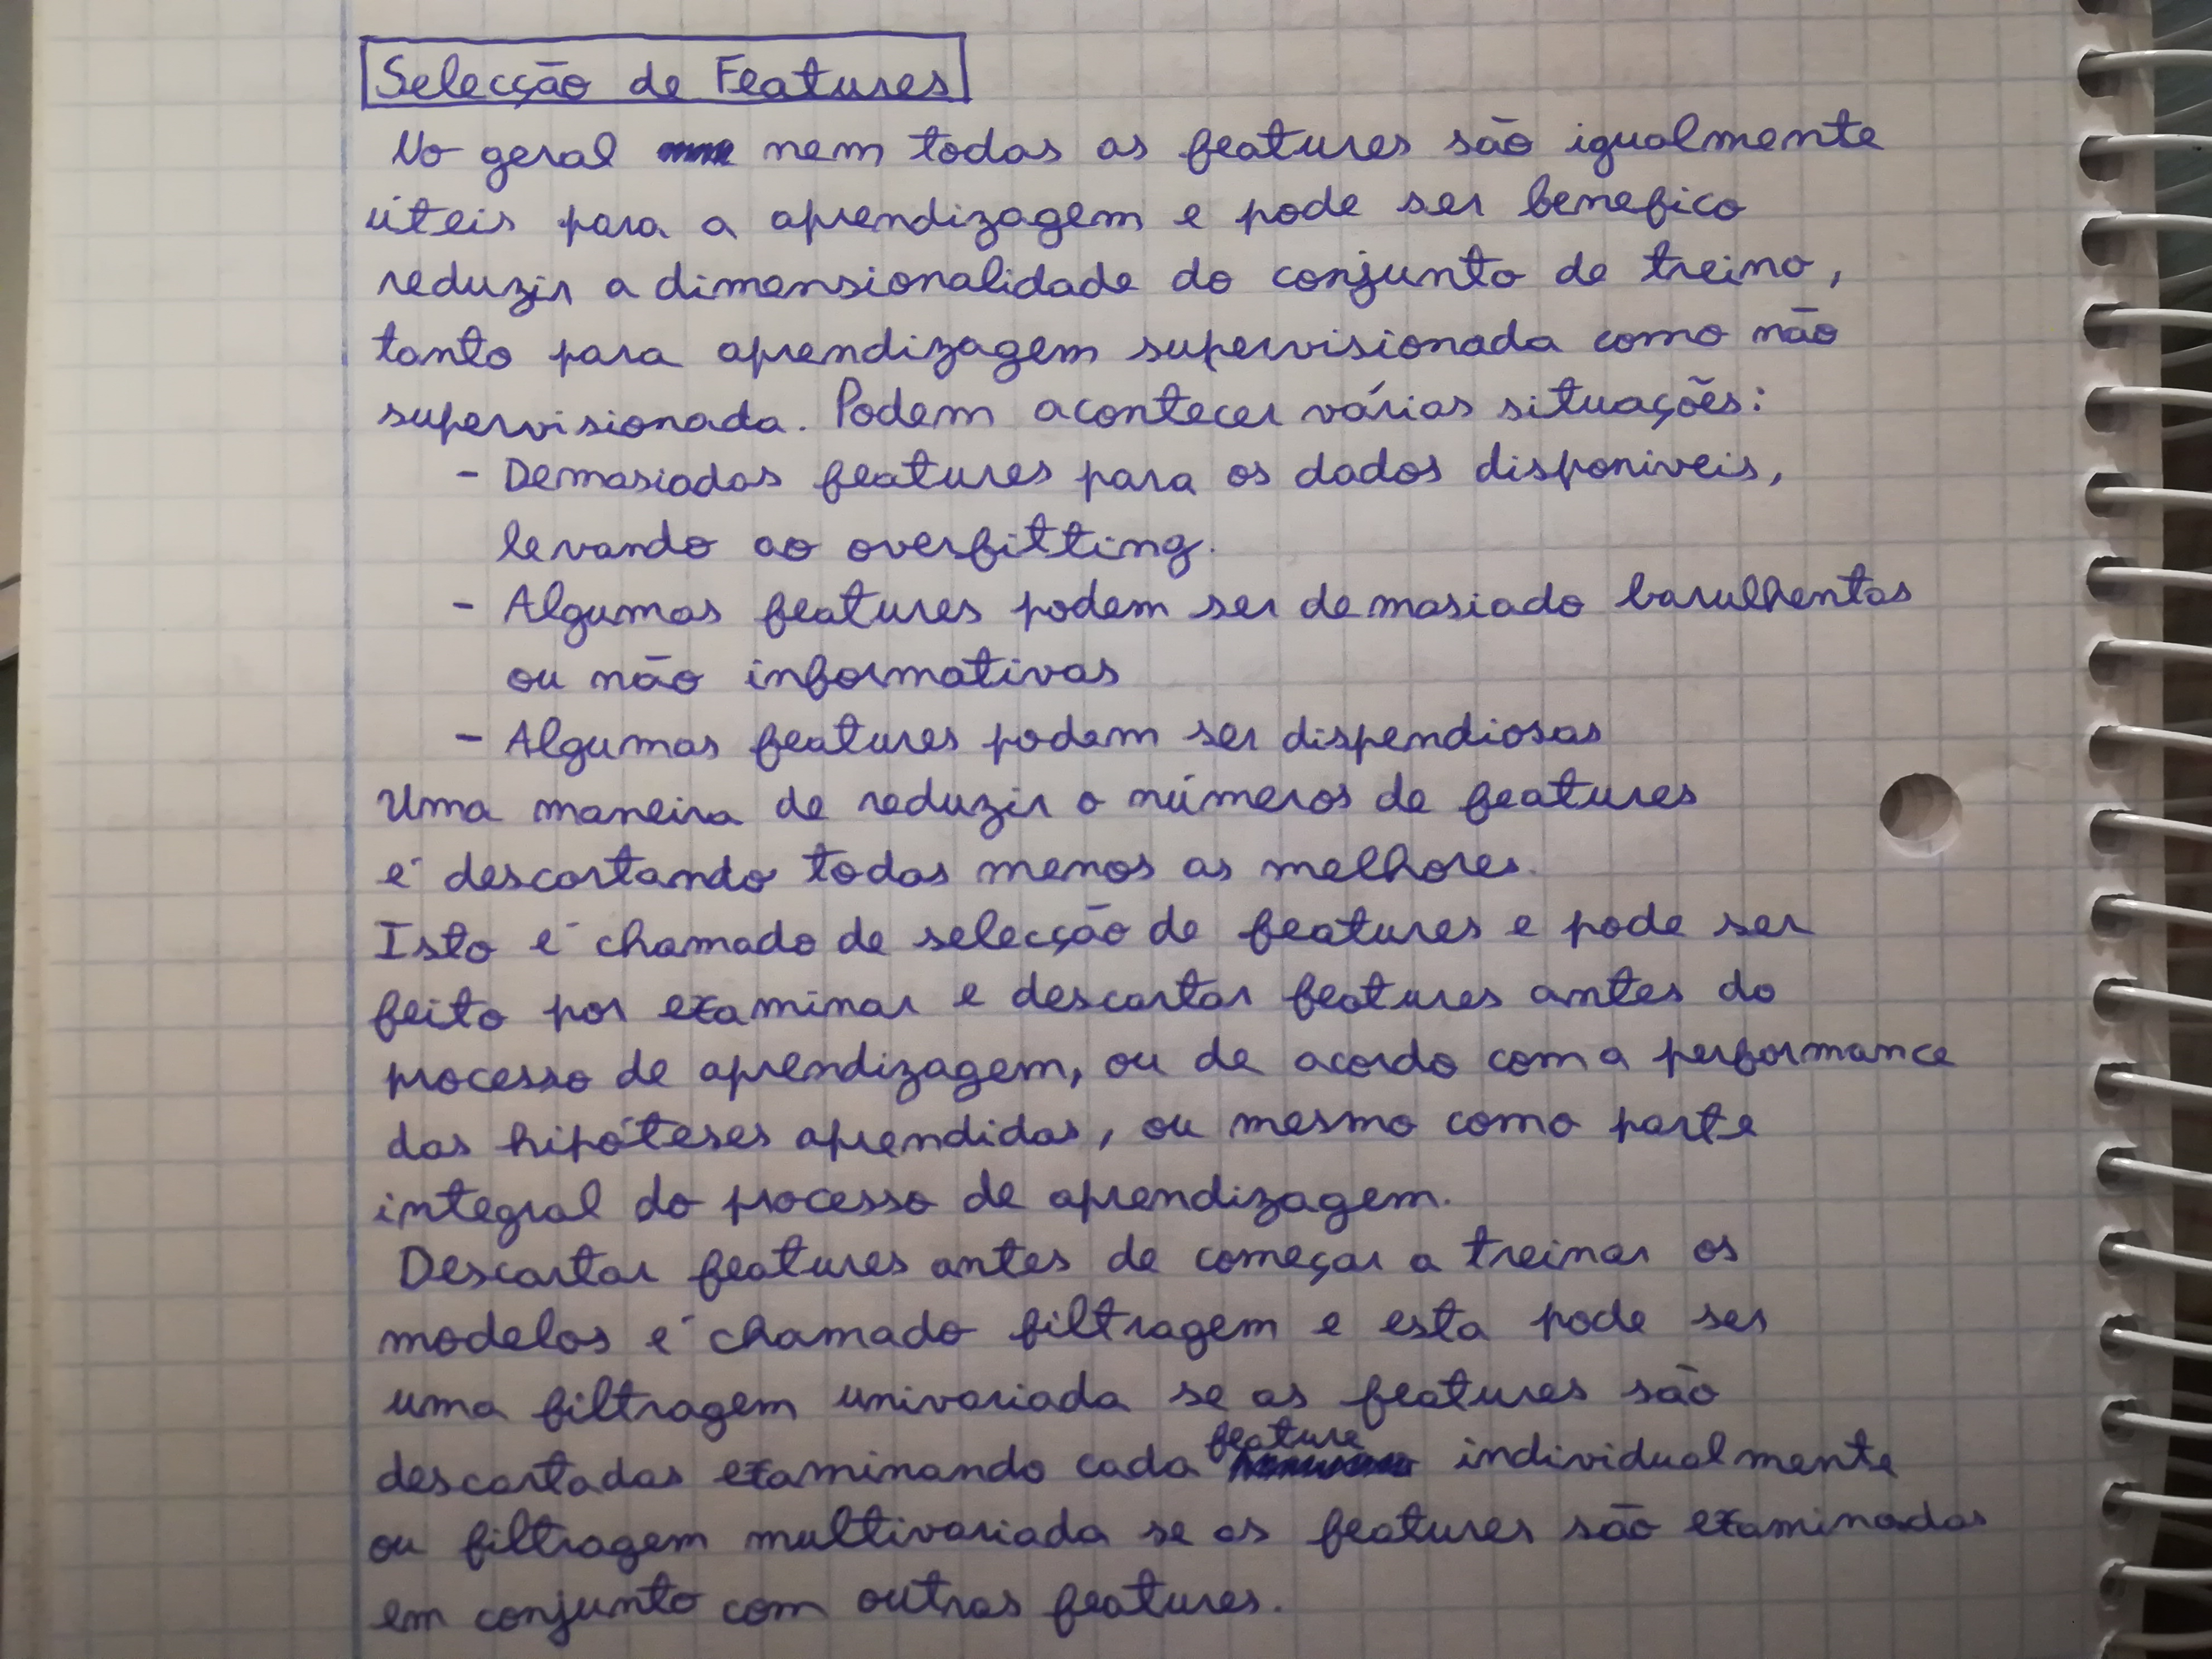 Selecção de Features
No geral nem todas as features são igualmente
úteis para a aprendizagem e pode ser benefico
reduzir a dimensionalidade do conjunto de treino,
tanto para aprendizagem supervisionada como não
supervisionada. Podem acontecer várias situações:
- Demasiadas features para os dados disponiveis,
levando ao overfitting.
- Algumas features podem ser demasiado barulhentas
ou não informativas
- Algumas features podem ser dispendiosas
Uma maneira de reduzir o números de features
é descartando todas menos as melhores.
Isto é chamado de selecção de features e pode ser
feito por examinar e descartar features antes do
processo de aprendizagem, ou de acordo com a performance
das hipóteses aprendidas, ou mesmo como parte
integral do processo de aprendizagem.
Descartar features antes de começar a treinar os
modelos é chamado filtragem e esta pode ser
uma filtragem univariada se as features são
descartadas examinando cada feature individualmente
ou filtragem multivariada se as features são examinadas
em conjunto com outras features.